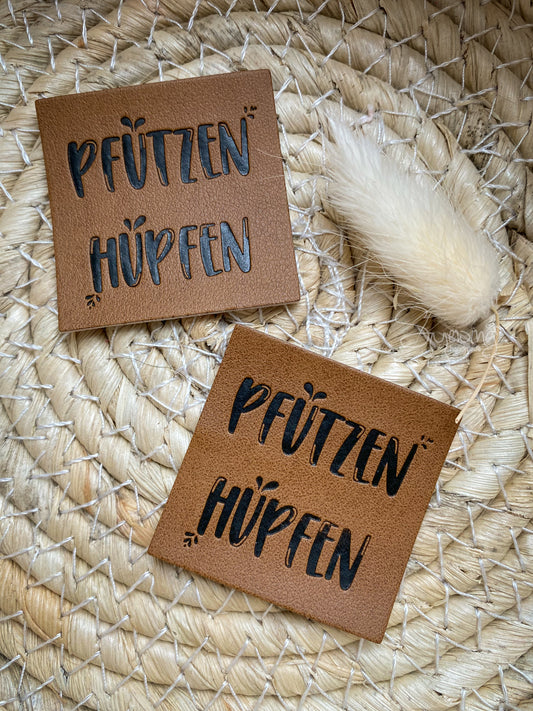 PFÜTZEN
HÜPFEN
PFÜTZEN
HÜPFEN